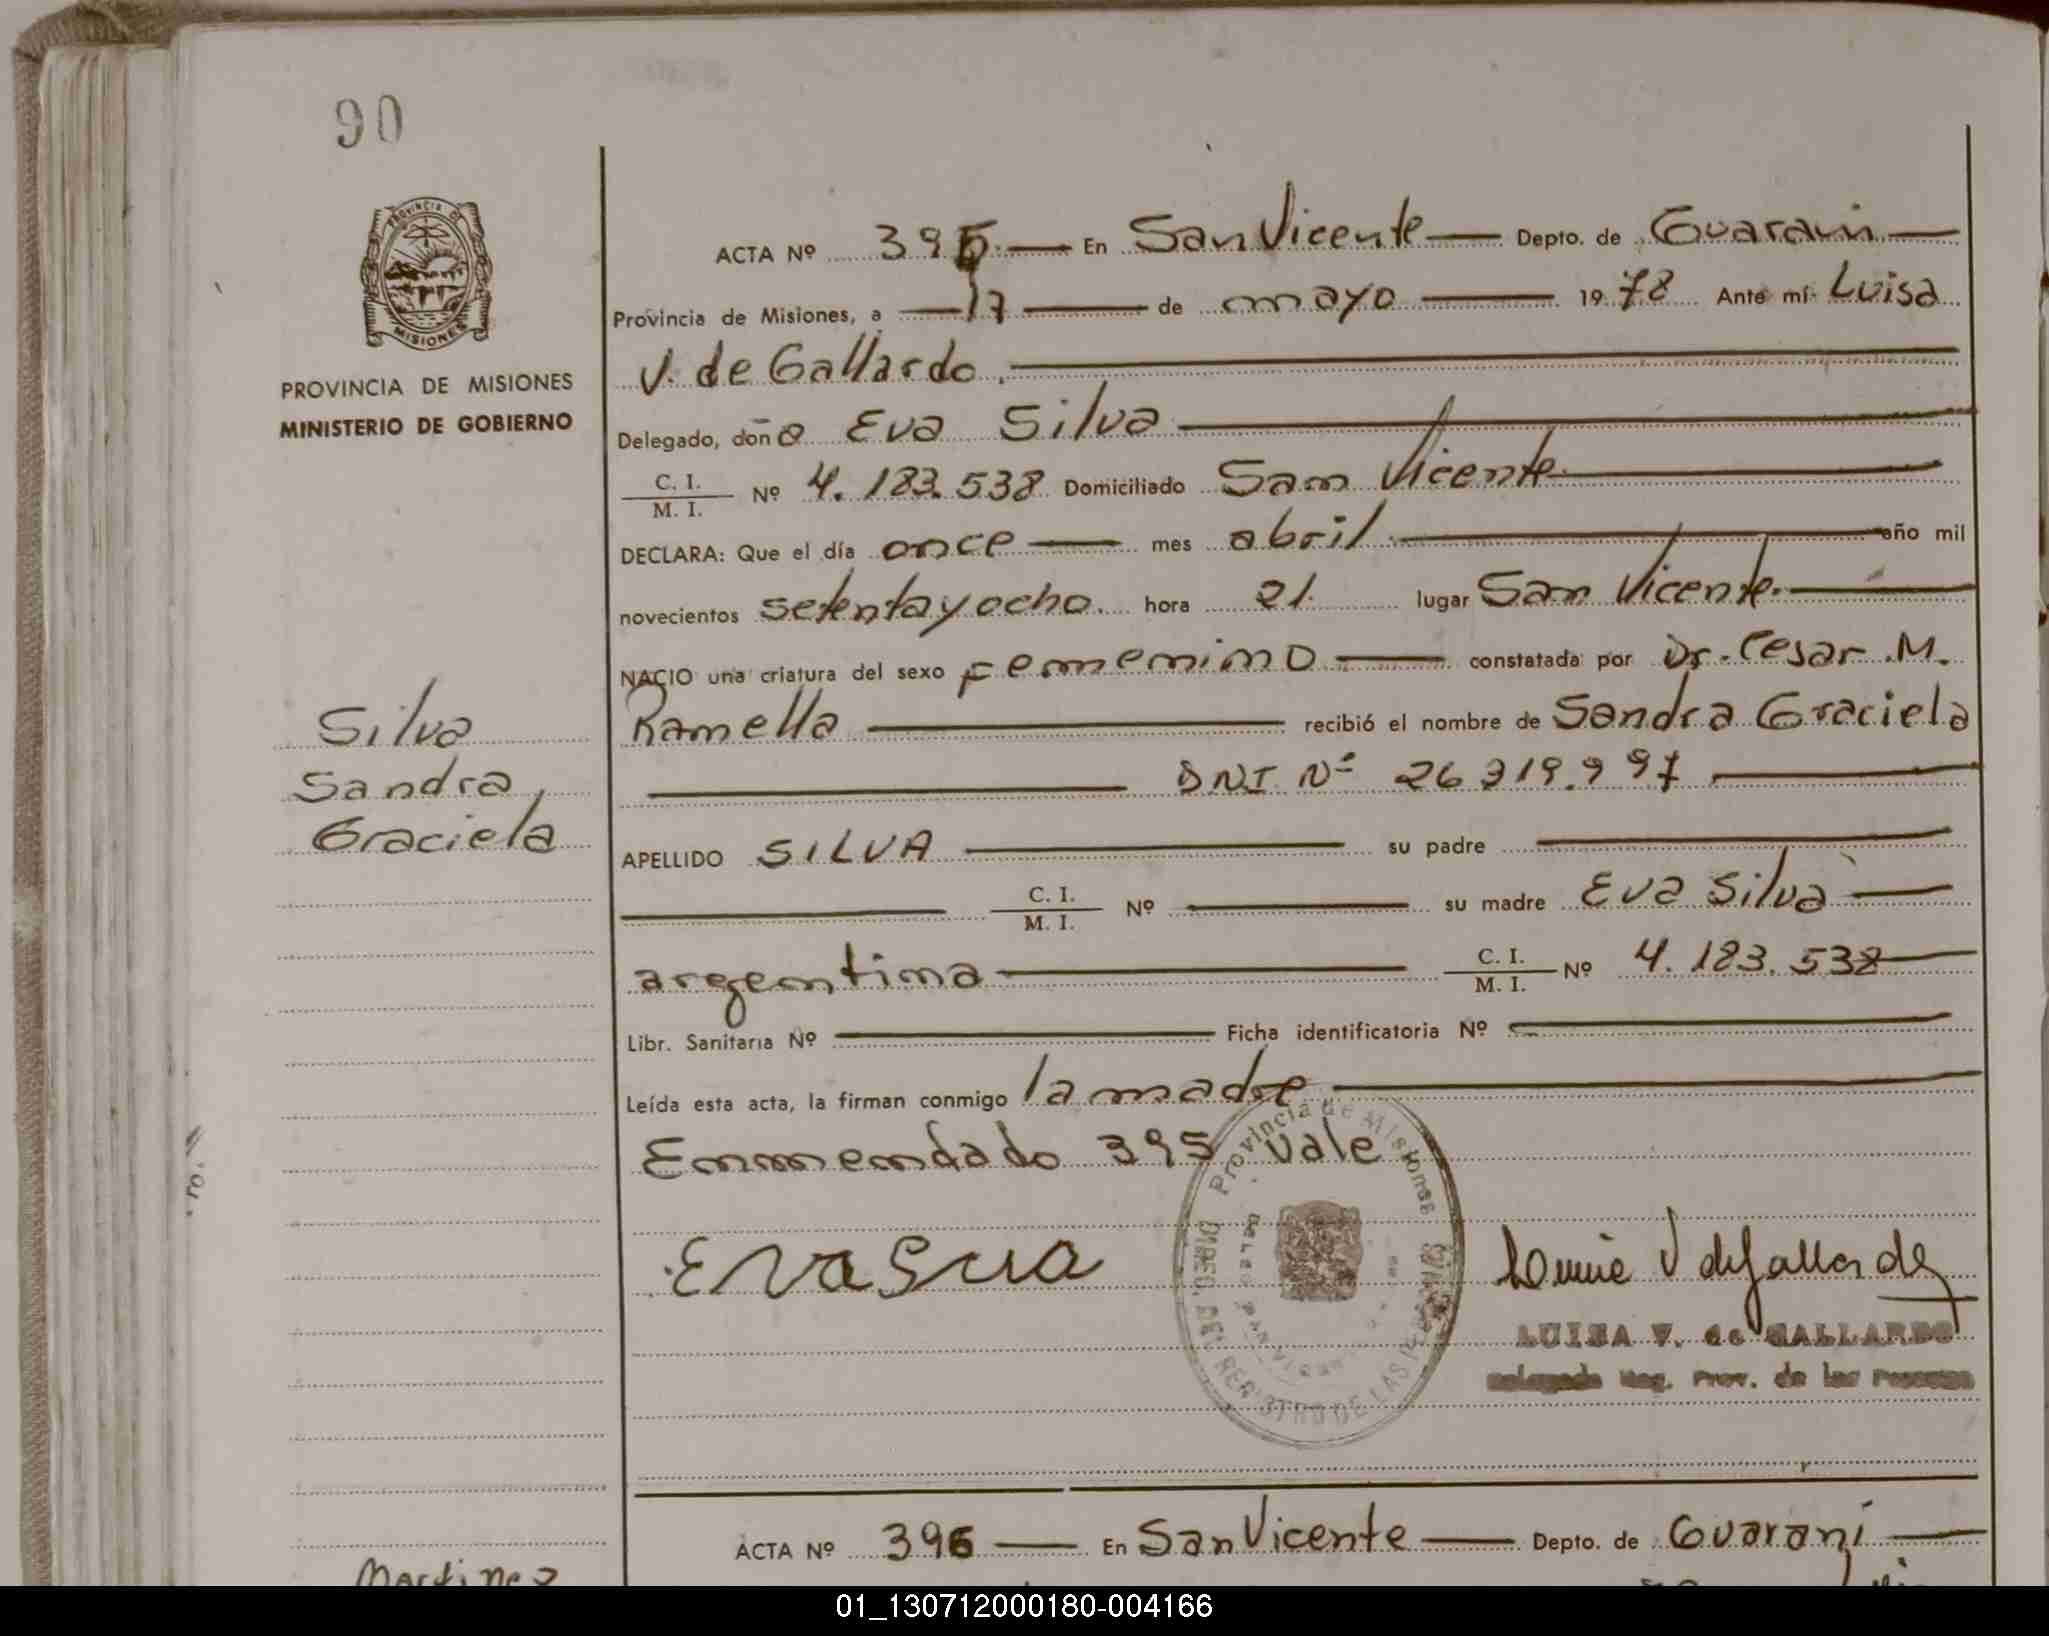 90
PROVINCIA DE MISIONES
PROVINCIA DE MISIONES
MINISTERIO DE GOBIERNO
ACTA Nº 395 En San Vicente Depto. de Guarani
Provincia de Misiones, a 17 de mayo 1978 Ante mí Luisa
V. de Gallardo.
Delegado, doña Eva Silva
C. I. / M. I. Nº 4.183.538 Domiciliado San Vicente
DECLARA: Que el día once mes abril año mil
novecientos setentayocho. hora 21. lugar San Vicente.
NACIO una criatura del sexo femenino constatada por Dr. Cesar M.
Ramella recibió el nombre de Sandra Graciela
DNI. Nº 26 319.997
APELLIDO SILVA su padre
C. I. / M. I. Nº su madre Eva Silva
argentina C. I. / M. I. Nº 4.183.538
Libr. Sanitaria Nº Ficha identificatoria Nº
Leída esta acta, la firman conmigo la madre
Enmendado 395 Vale
Silva
Sandra
Graciela
Provincia de Misiones
DIREC. DEL REGISTRO DE LAS
Eva Silva
Luisa V de Gallardo
LUISA V. de GALLARDO
Delegada Reg. Prov. de las Personas
ACTA Nº 396 En San Vicente Depto. de Guaraní
Martinez
01_130712000180-004166